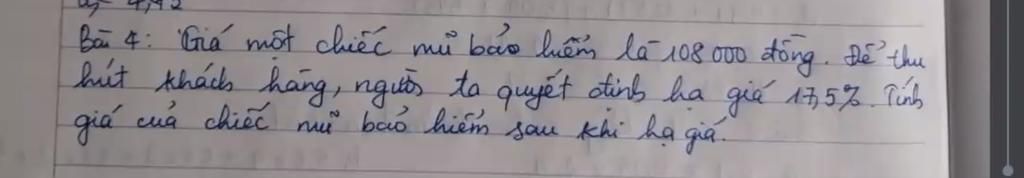 Bài 4: Giá một chiếc mũ bảo hiểm là 108 000 đồng. Để thu
hút khách hàng, người ta quyết định hạ giá 17,5%. Tính
giá của chiếc mũ bảo hiểm sau khi hạ giá.